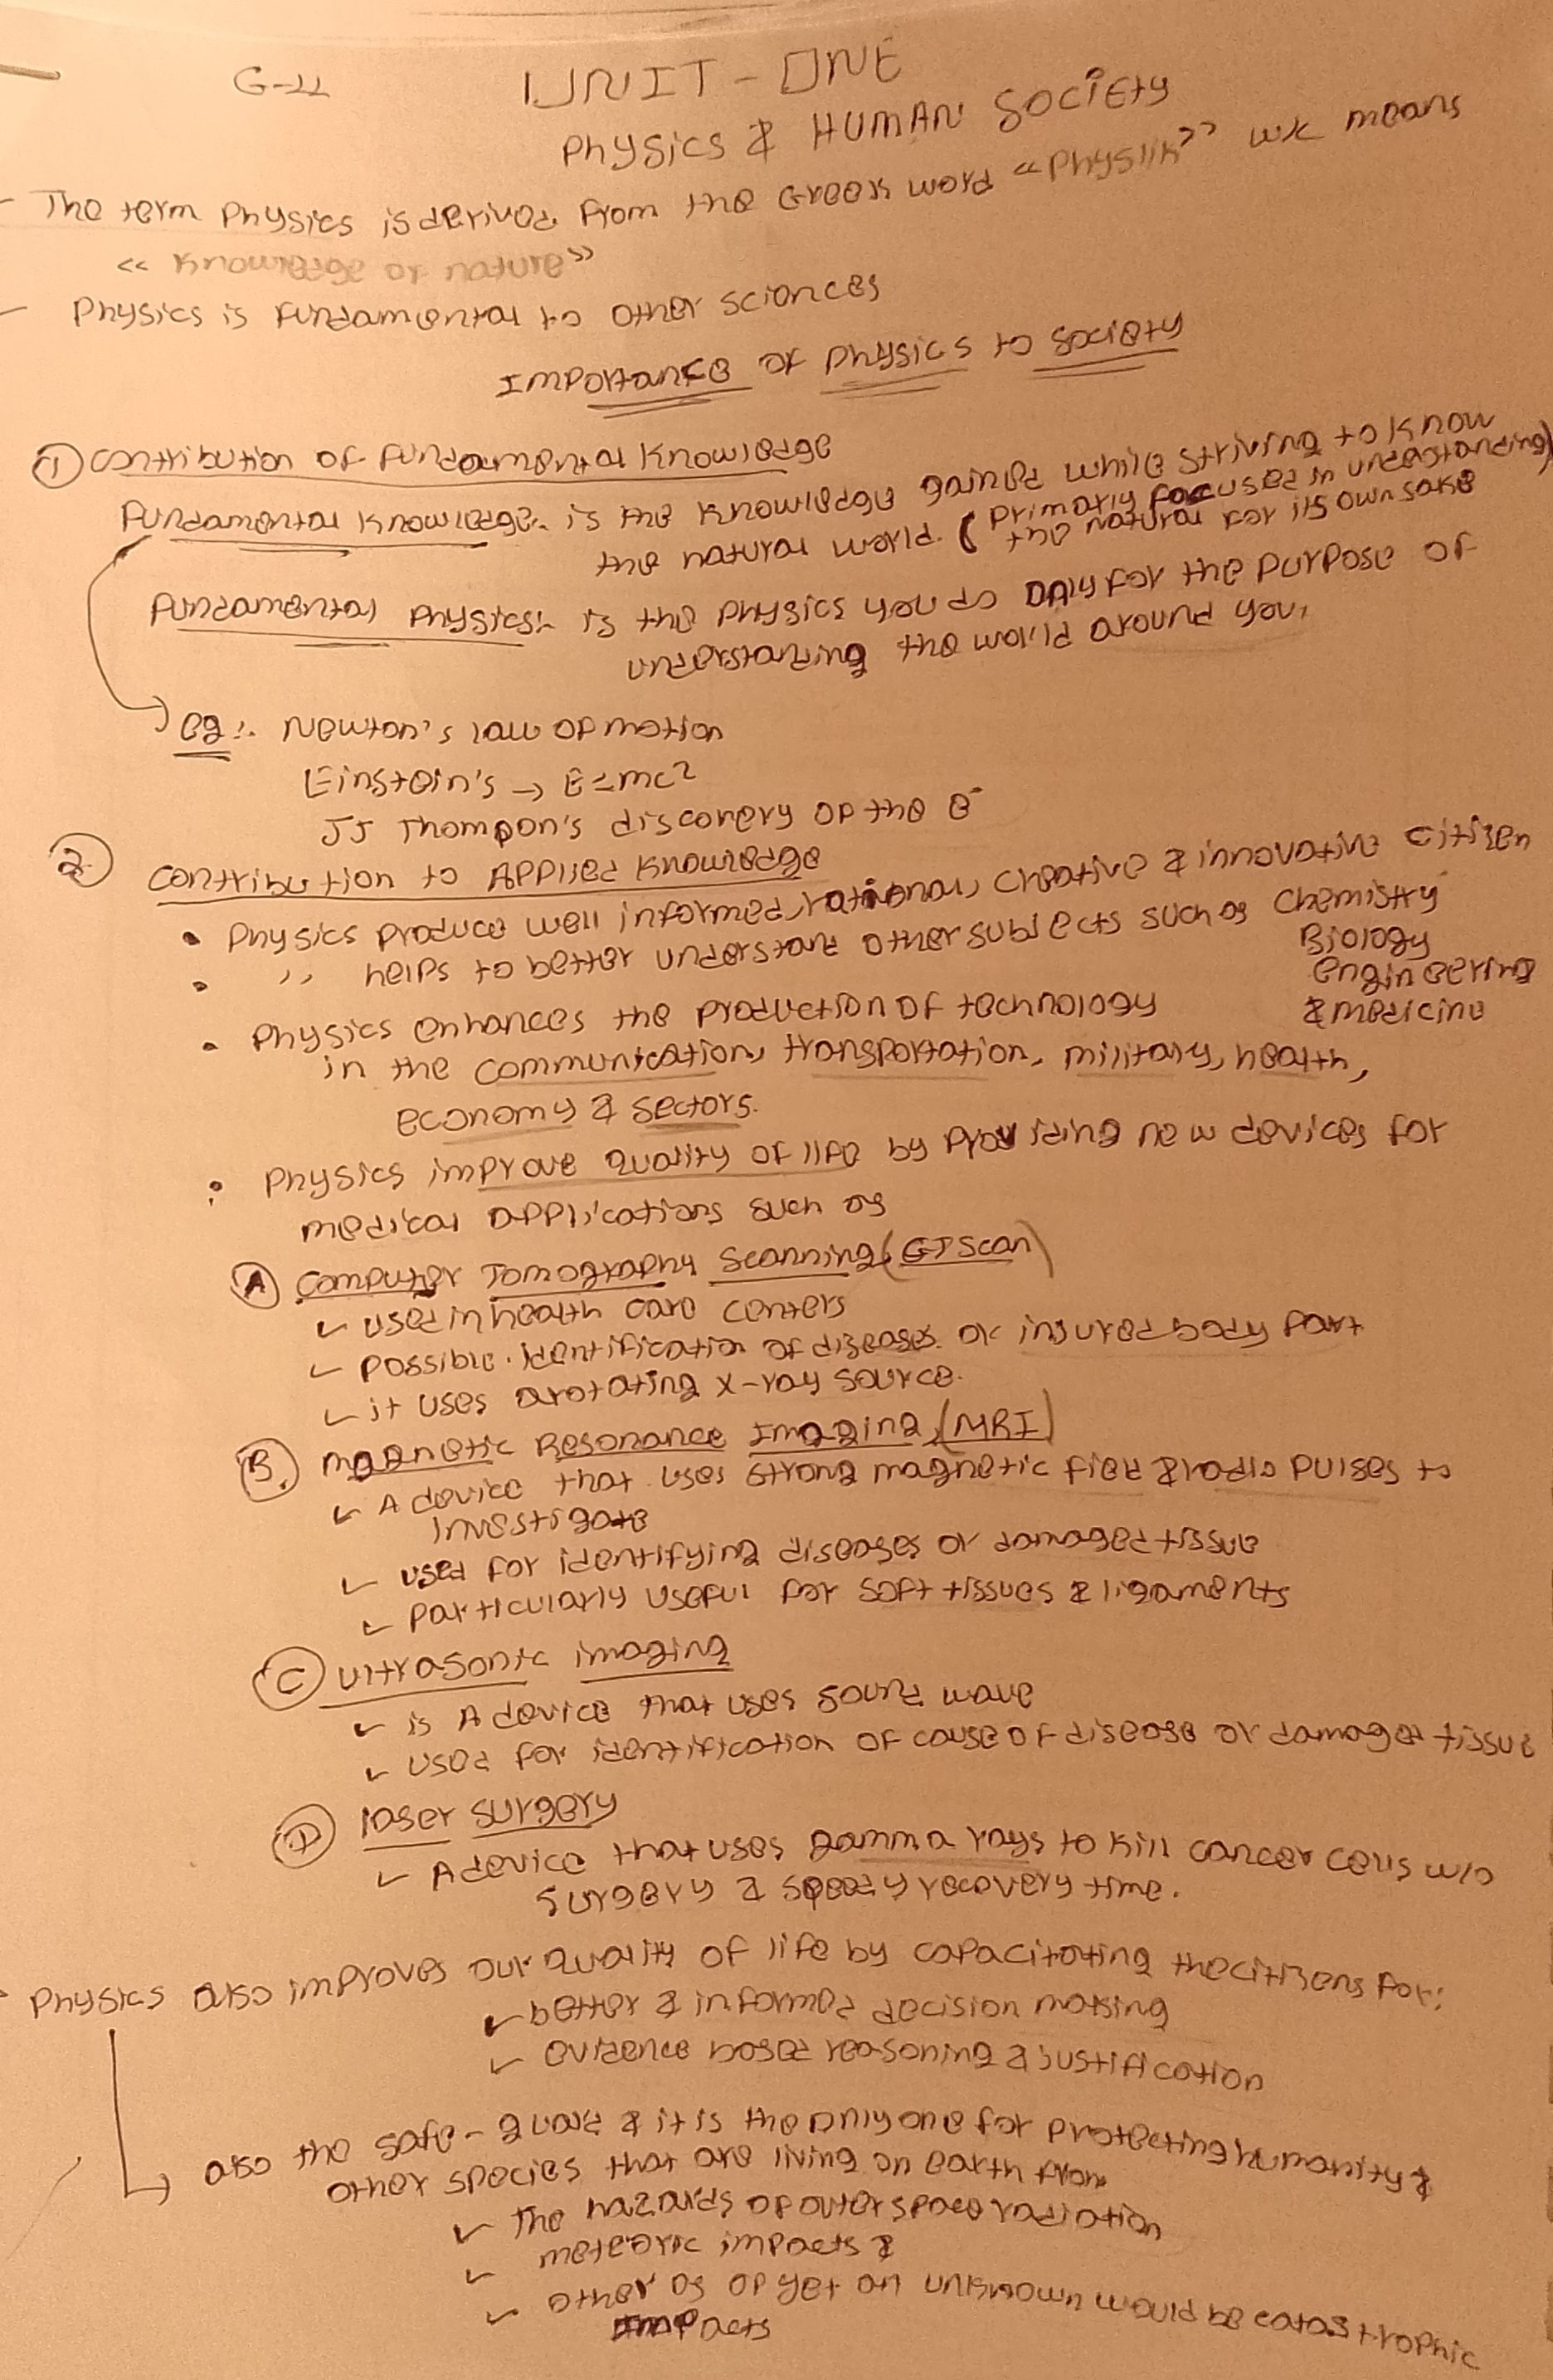 G-11
UNIT - ONE
Physics & HUMAN SOCiEty
- The term Physics is derived from the Greek word «Physiik» wk means
« Knowledge of nature»
- Physics is fundamental to other sciences
Importance of physics to society
① Contribution of fundamental Knowledge
Fundamental Knowledge:- is the Knowledge gained while striving to Know
the natural world. ( primarly focused in understanding)
the natural for its own sake
Fundamental physics:- is the physics you do Only for the purpose of
understanding the world around you,
eg:. Newton's law of motion
Einstein's → E=mc²
JJ Thompon's discovery of the e⁻
2. Contribution to Applied Knowledge
• Physics produce well informed, rational, creative & innovative citizen
• ,, helps to better understand other subjects such as Chemistry
Biology
engineering
& medicine
• Physics enhances the production of technology
in the communication, transportation, military, health,
economy & sectors.
• Physics improve quality of life by providing new devices for
medical applications such as
Ⓐ Computer Tomography Scanning (CT Scan)
✓ used in health care centers
✓ possible. identification of diseases or injured body part
✓ it uses a rotating x-ray source.
B. Magnetic Resonance Imaging, (MRI)
✓ A device that uses strong magnetic field & radio pulses to
investigate
✓ used for identifying diseases or damaged tissue
✓ particularly useful for soft tissues & ligaments
Ⓒ ultrasonic imaging
✓ is A device that uses sound wave
✓ used for identification of cause of disease or damaged tissue
Ⓓ laser surgery
✓ A device that uses gamma rays to kill cancer cells w/o
surgery & speedy recovery time.
• Physics also improves our quality of life by capacitating the citizens for:
✓ better & informed decision making
✓ evidence based reasoning & justification
also the safe-guard & it is the only one for protecting humanity &
other species that are living on earth from
✓ The hazards of outer space radiation
✓ meteoric impacts &
✓ other as of yet an unknown would be catastrophic
Impacts